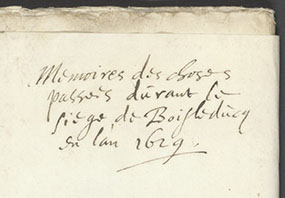 Memoires des choses
passeés durant le
siege de Boisleducq
en lan 1629.